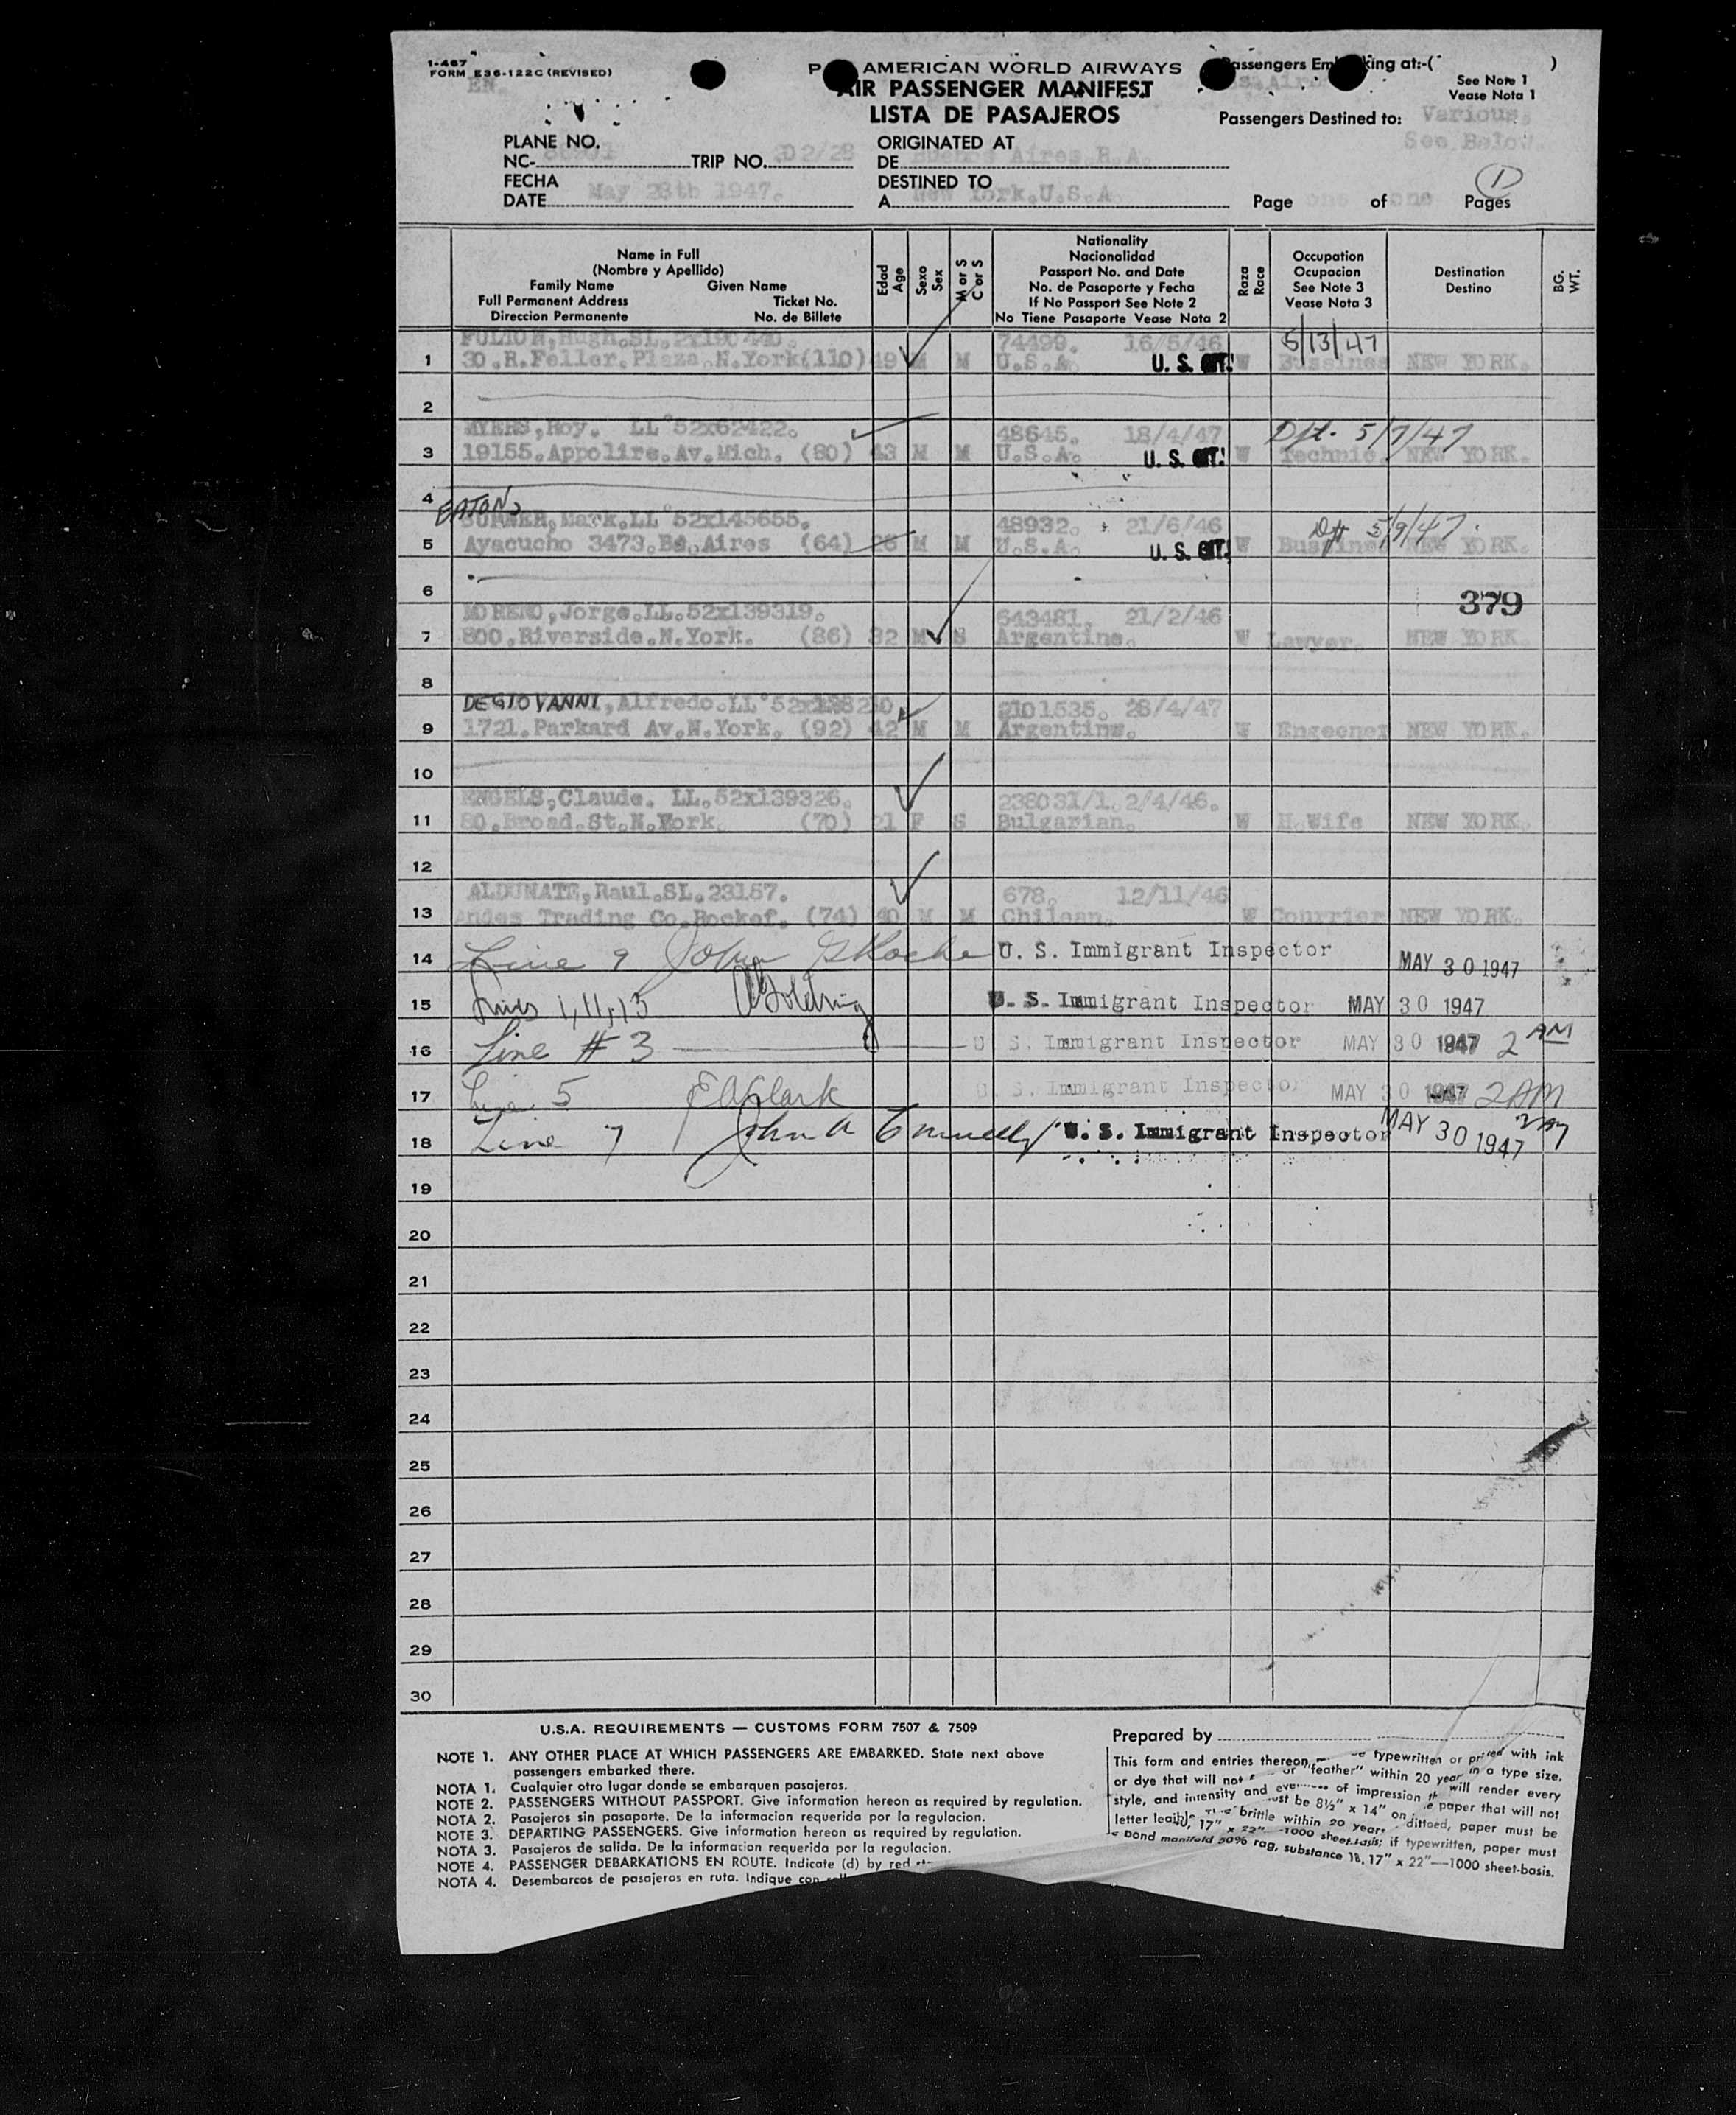 1-467
FORM E36-122C (REVISED)
EN.
AMERICAN WORLD AIRWAYS
AIR PASSENGER MANIFEST
LISTA DE PASAJEROS
See Note 1
Vease Nota 1
Passengers Destined to: Various.
See Below.
PLANE NO.
NC- TRIP NO. 2/28
ORIGINATED AT
DE Buenos Aires R.A.
FECHA
DATE May 28th 1947.
DESTINED TO
A New York.U.S.A.
Page one of one Pages
1
Name in Full
(Nombre y Apellido)
Family Name Given Name
Full Permanent Address Ticket No.
Direccion Permanente No. de Billete
Edad
Age
Sexo
Sex
M or S
C or S
Nationality
Nacionalidad
Passport No. and Date
No. de Pasaporte y Fecha
If No Passport See Note 2
No Tiene Pasaporte Vease Nota 2
Raza
Race
Occupation
Ocupacion
See Note 3
Vease Nota 3
Destination
Destino
BG.
WT.
FULTON, Hugh.SL.2x190440. 74499. 16/5/46 5/13/47
1 30.R.Feller.Plaza.N.York(110) 49 M M U.S.A. U. S. CIT. W Bussines NEW YORK.
2
MYERS,Roy. LL°52x62422. 48645. 18/4/47 Dft. 5/7/47
3 19155.Appolire.Av.Mich. (80) 43 M M U.S.A. U. S. CIT. W Technic. NEW YORK.
4
EATON,
Mark.LL°52x145655. 48932. 21/6/46 Dft 5/9/47.
5 Ayacucho 3473.Bs.Aires (64) 26 M M U.S.A. U. S. CIT. W Bussines NEW YORK.
6 379
MORENO,Jorge.LL.52x139319. 643481. 21/2/46
7 800.Riverside.N.York. (86) 32 M S Argentine. W Lawyer. NEW YORK.
8
DEGIOVANNI, Alfredo.LL°52x 2101535. 28/4/47
9 1721.Parkard Av.N.York. (92) 42 M M Argentine. W Engeener NEW YORK.
10
ENGELS,Claude. LL.52x139326. 238031/1. 2/4/46.
11 80.Broad.St.N.York. (70) 21 F S Bulgarian. W H.Wife NEW YORK.
12
ALDUNATE,Raul.SL.23157. 678. 12/11/46
13 Andes Trading Co.Rockef. (74) 40 M M Chilean. W Courrier NEW YORK.
14 Line 9 John G Roche U. S. Immigrant Inspector MAY 30 1947
15 Lines 1, 11, 13 U. S. Immigrant Inspector MAY 30 1947
16 Line # 3 U S. Immigrant Inspector MAY 30 1947 2 AM
17 Line 5 EAClark U. S. Immigrant Inspector MAY 30 1947 2AM
18 Line 7 John A U. S. Immigrant Inspector MAY 30 1947
19
20
21
22
23
24
25
26
27
28
29
30
U.S.A. REQUIREMENTS — CUSTOMS FORM 7507 & 7509
NOTE 1. ANY OTHER PLACE AT WHICH PASSENGERS ARE EMBARKED. State next above
passengers embarked there.
NOTA 1. Cualquier otro lugar donde se embarquen pasajeros.
NOTE 2. PASSENGERS WITHOUT PASSPORT. Give information hereon as required by regulation.
NOTA 2. Pasajeros sin pasaporte. De la informacion requerida por la regulacion.
NOTE 3. DEPARTING PASSENGERS. Give information hereon as required by regulation.
NOTA 3. Pasajeros de salida. De la informacion requerida por la regulacion.
NOTE 4. PASSENGER DEBARKATIONS EN ROUTE. Indicate (d) by red
NOTA 4. Desembarcos de pasajeros en ruta. Indique con
Prepared by
This form and entries thereon typewritten or printed with ink
or dye that will not or "feather" within 20 year in a type size,
style, and intensity and of impression will render every
letter legible must be 8½" x 14" on paper that will not
brittle within 20 years dittoed, paper must be
17" x 22" 1000 sheet-basis; if typewritten, paper must
bond manifold 50% rag, substance 18, 17" x 22"—1000 sheet-basis.